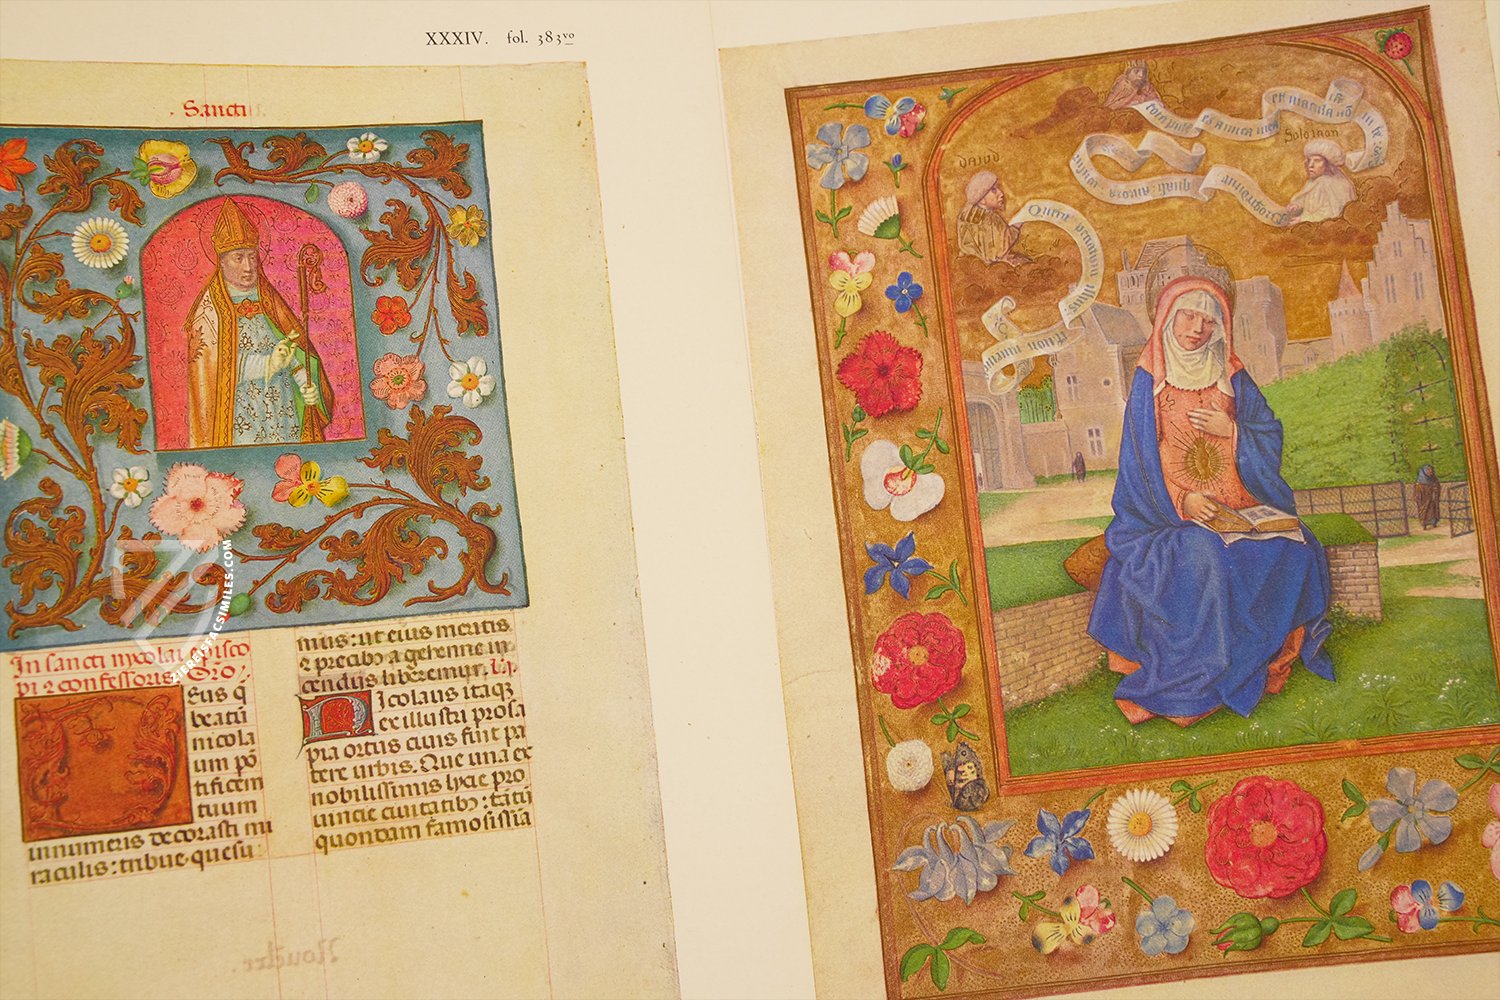 XXXIV. fol. 383vo
Sancti
In sancti nycolai episco
pi ⁊ confessoris. Oro.
Deus q
beatū
nicola
um pō
tificem
tuum
innumeris decorasti mi
raculis: tribue quesu
mus: ut eius meritis
⁊ precibꝯ a gehenne in
cendiis liberemur.
Nicolaus itaqꝫ
ex illustri prosa
pia ortus ciuis fuit pa
tere urbis. Que una ex
nobilissimis lycie pro
uincie ciuitatibꝯ: tātū
quondam famosissia
dauid
Solomon
ZIEREISFACSIMILES.COM